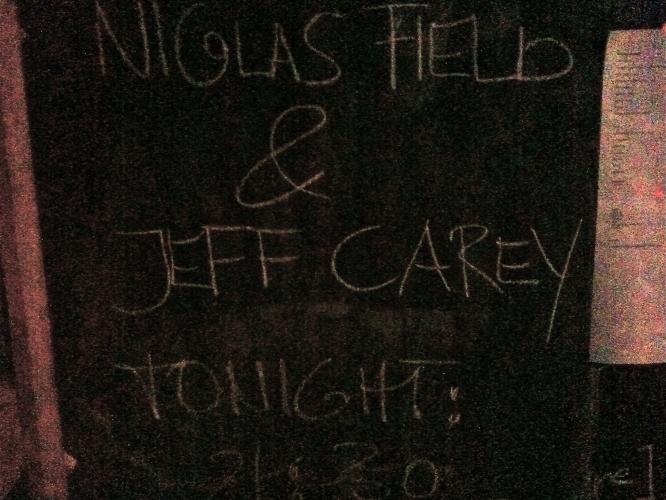 NIGLAS FIELD
&
JEFF CAREY
TONIGHT:
21:30